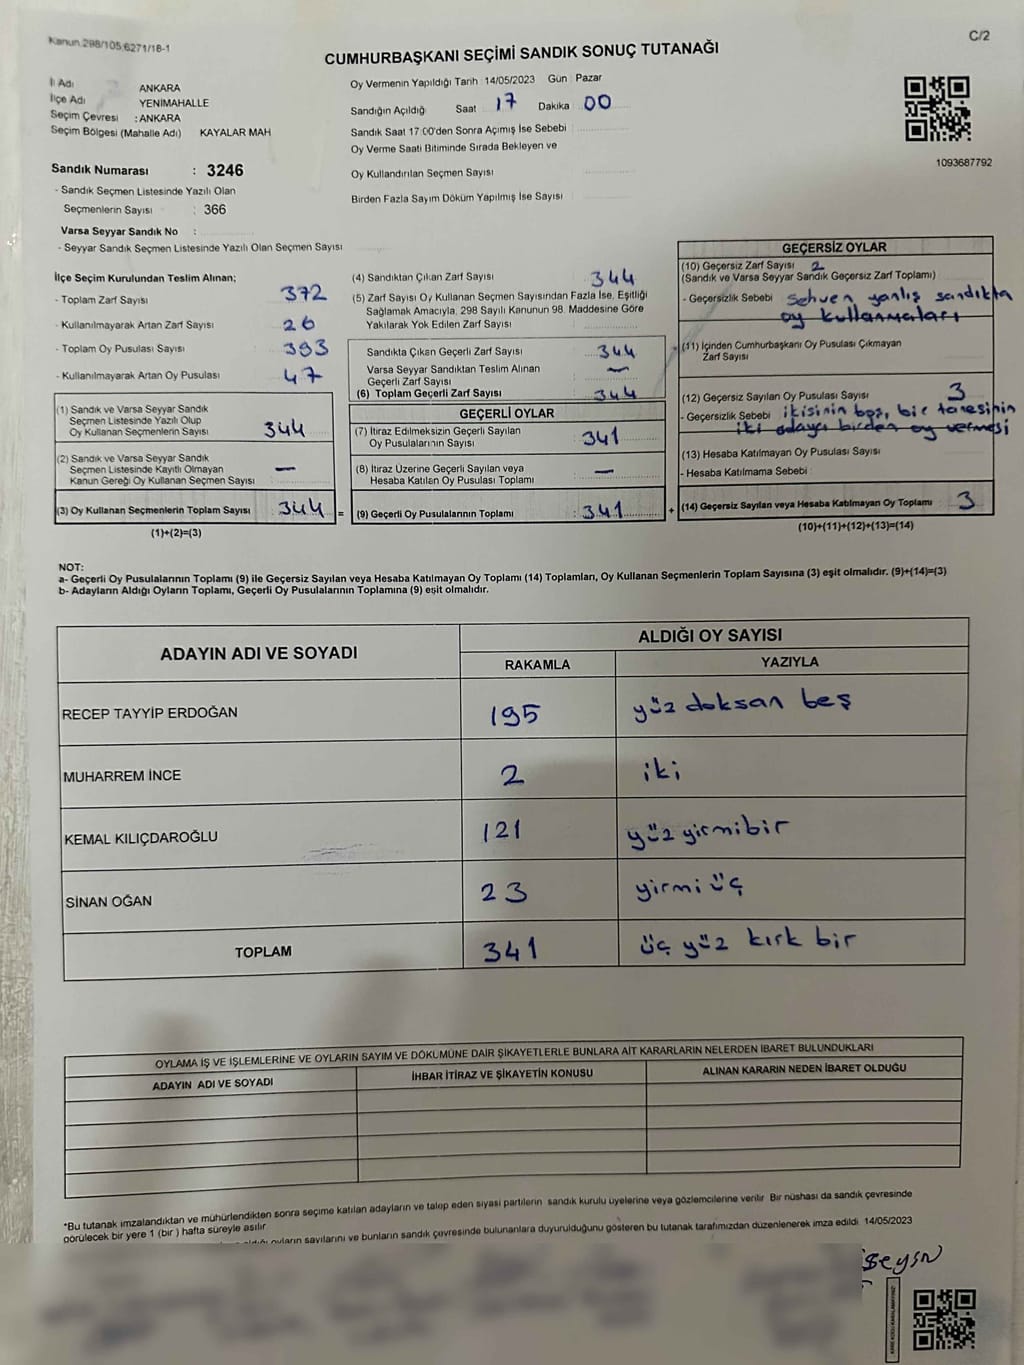 Kanun.298/105;6271/18-1
C/2
CUMHURBAŞKANI SEÇİMİ SANDIK SONUÇ TUTANAĞI
İl Adı ANKARA
İlçe Adı YENİMAHALLE
Seçim Çevresi : ANKARA
Seçim Bölgesi (Mahalle Adı) KAYALAR MAH
Sandık Numarası : 3246
- Sandık Seçmen Listesinde Yazılı Olan
Seçmenlerin Sayısı : 366
Varsa Seyyar Sandık No :
- Seyyar Sandık Seçmen Listesinde Yazılı Olan Seçmen Sayısı
Oy Vermenin Yapıldığı Tarih 14/05/2023 Gün Pazar
Sandığın Açıldığı Saat 17 Dakika 00
Sandık Saat 17:00'den Sonra Açımış İse Sebebi
Oy Verme Saati Bitiminde Sırada Bekleyen ve
Oy Kullandırılan Seçmen Sayısı
Birden Fazla Sayım Döküm Yapılmış İse Sayısı
1093687792
İlçe Seçim Kurulundan Teslim Alınan;
- Toplam Zarf Sayısı 372
- Kullanılmayarak Artan Zarf Sayısı 26
- Toplam Oy Pusulası Sayısı 393
- Kullanılmayarak Artan Oy Pusulası 47
(1) Sandık ve Varsa Seyyar Sandık
Seçmen Listesinde Yazılı Olup
Oy Kullanan Seçmenlerin Sayısı 344
(2) Sandık ve Varsa Seyyar Sandık
Seçmen Listesinde Kayıtlı Olmayan
Kanun Gereği Oy Kullanan Seçmen Sayısı —
(3) Oy Kullanan Seçmenlerin Toplam Sayısı : 344 =
(1)+(2)=(3)
(4) Sandıktan Çıkan Zarf Sayısı 344
(5) Zarf Sayısı Oy Kullanan Seçmen Sayısından Fazla İse, Eşitliği
Sağlamak Amacıyla, 298 Sayılı Kanunun 98. Maddesine Göre
Yakılarak Yok Edilen Zarf Sayısı
Sandıkta Çıkan Geçerli Zarf Sayısı 344
Varsa Seyyar Sandıktan Teslim Alınan —
Geçerli Zarf Sayısı
(6) Toplam Geçerli Zarf Sayısı 344
GEÇERLİ OYLAR
(7) İtiraz Edilmeksizin Geçerli Sayılan
Oy Pusulalarının Sayısı 341
(8) İtiraz Üzerine Geçerli Sayılan veya
Hesaba Katılan Oy Pusulası Toplamı —
(9) Geçerli Oy Pusulalarının Toplamı : 341 +
GEÇERSİZ OYLAR
(10) Geçersiz Zarf Sayısı 2
(Sandık ve Varsa Seyyar Sandık Geçersiz Zarf Toplamı)
- Geçersizlik Sebebi sehven yanlış sandıkta
oy kullanmaları
(11) İçinden Cumhurbaşkanı Oy Pusulası Çıkmayan
Zarf Sayısı
(12) Geçersiz Sayılan Oy Pusulası Sayısı 3
- Geçersizlik Sebebi ikisinin boş, bir tanesinin
iki adaya birden oy vermesi
(13) Hesaba Katılmayan Oy Pusulası Sayısı
- Hesaba Katılmama Sebebi
(14) Geçersiz Sayılan veya Hesaba Katılmayan Oy Toplamı 3
(10)+(11)+(12)+(13)=(14)
NOT:
a- Geçerli Oy Pusulalarının Toplamı (9) ile Geçersiz Sayılan veya Hesaba Katılmayan Oy Toplamı (14) Toplamları, Oy Kullanan Seçmenlerin Toplam Sayısına (3) eşit olmalıdır. (9)+(14)=(3)
b- Adayların Aldığı Oyların Toplamı, Geçerli Oy Pusulalarının Toplamına (9) eşit olmalıdır.
ADAYIN ADI VE SOYADI ALDIĞI OY SAYISI
RAKAMLA YAZIYLA
RECEP TAYYİP ERDOĞAN 195 yüz doksan beş
MUHARREM İNCE 2 iki
KEMAL KILIÇDAROĞLU 121 yüz yirmibir
SİNAN OĞAN 23 yirmi üç
TOPLAM 341 üç yüz kırk bir
OYLAMA İŞ VE İŞLEMLERİNE VE OYLARIN SAYIM VE DÖKÜMÜNE DAİR ŞİKAYETLERLE BUNLARA AİT KARARLARIN NELERDEN İBARET BULUNDUKLARI
ADAYIN ADI VE SOYADI İHBAR İTİRAZ VE ŞİKAYETİN KONUSU ALINAN KARARIN NEDEN İBARET OLDUĞU
*Bu tutanak imzalandıktan ve mühürlendikten sonra seçime katılan adayların ve talep eden siyasi partilerin sandık kurulu üyelerine veya gözlemcilerine verilir Bir nüshası da sandık çevresinde
görülecek bir yere 1 (bir ) hafta süreyle asılır
oyların sayılarını ve bunların sandık çevresinde bulunanlara duyurulduğunu gösteren bu tutanak tarafımızdan düzenlenerek imza edildi 14/05/2023